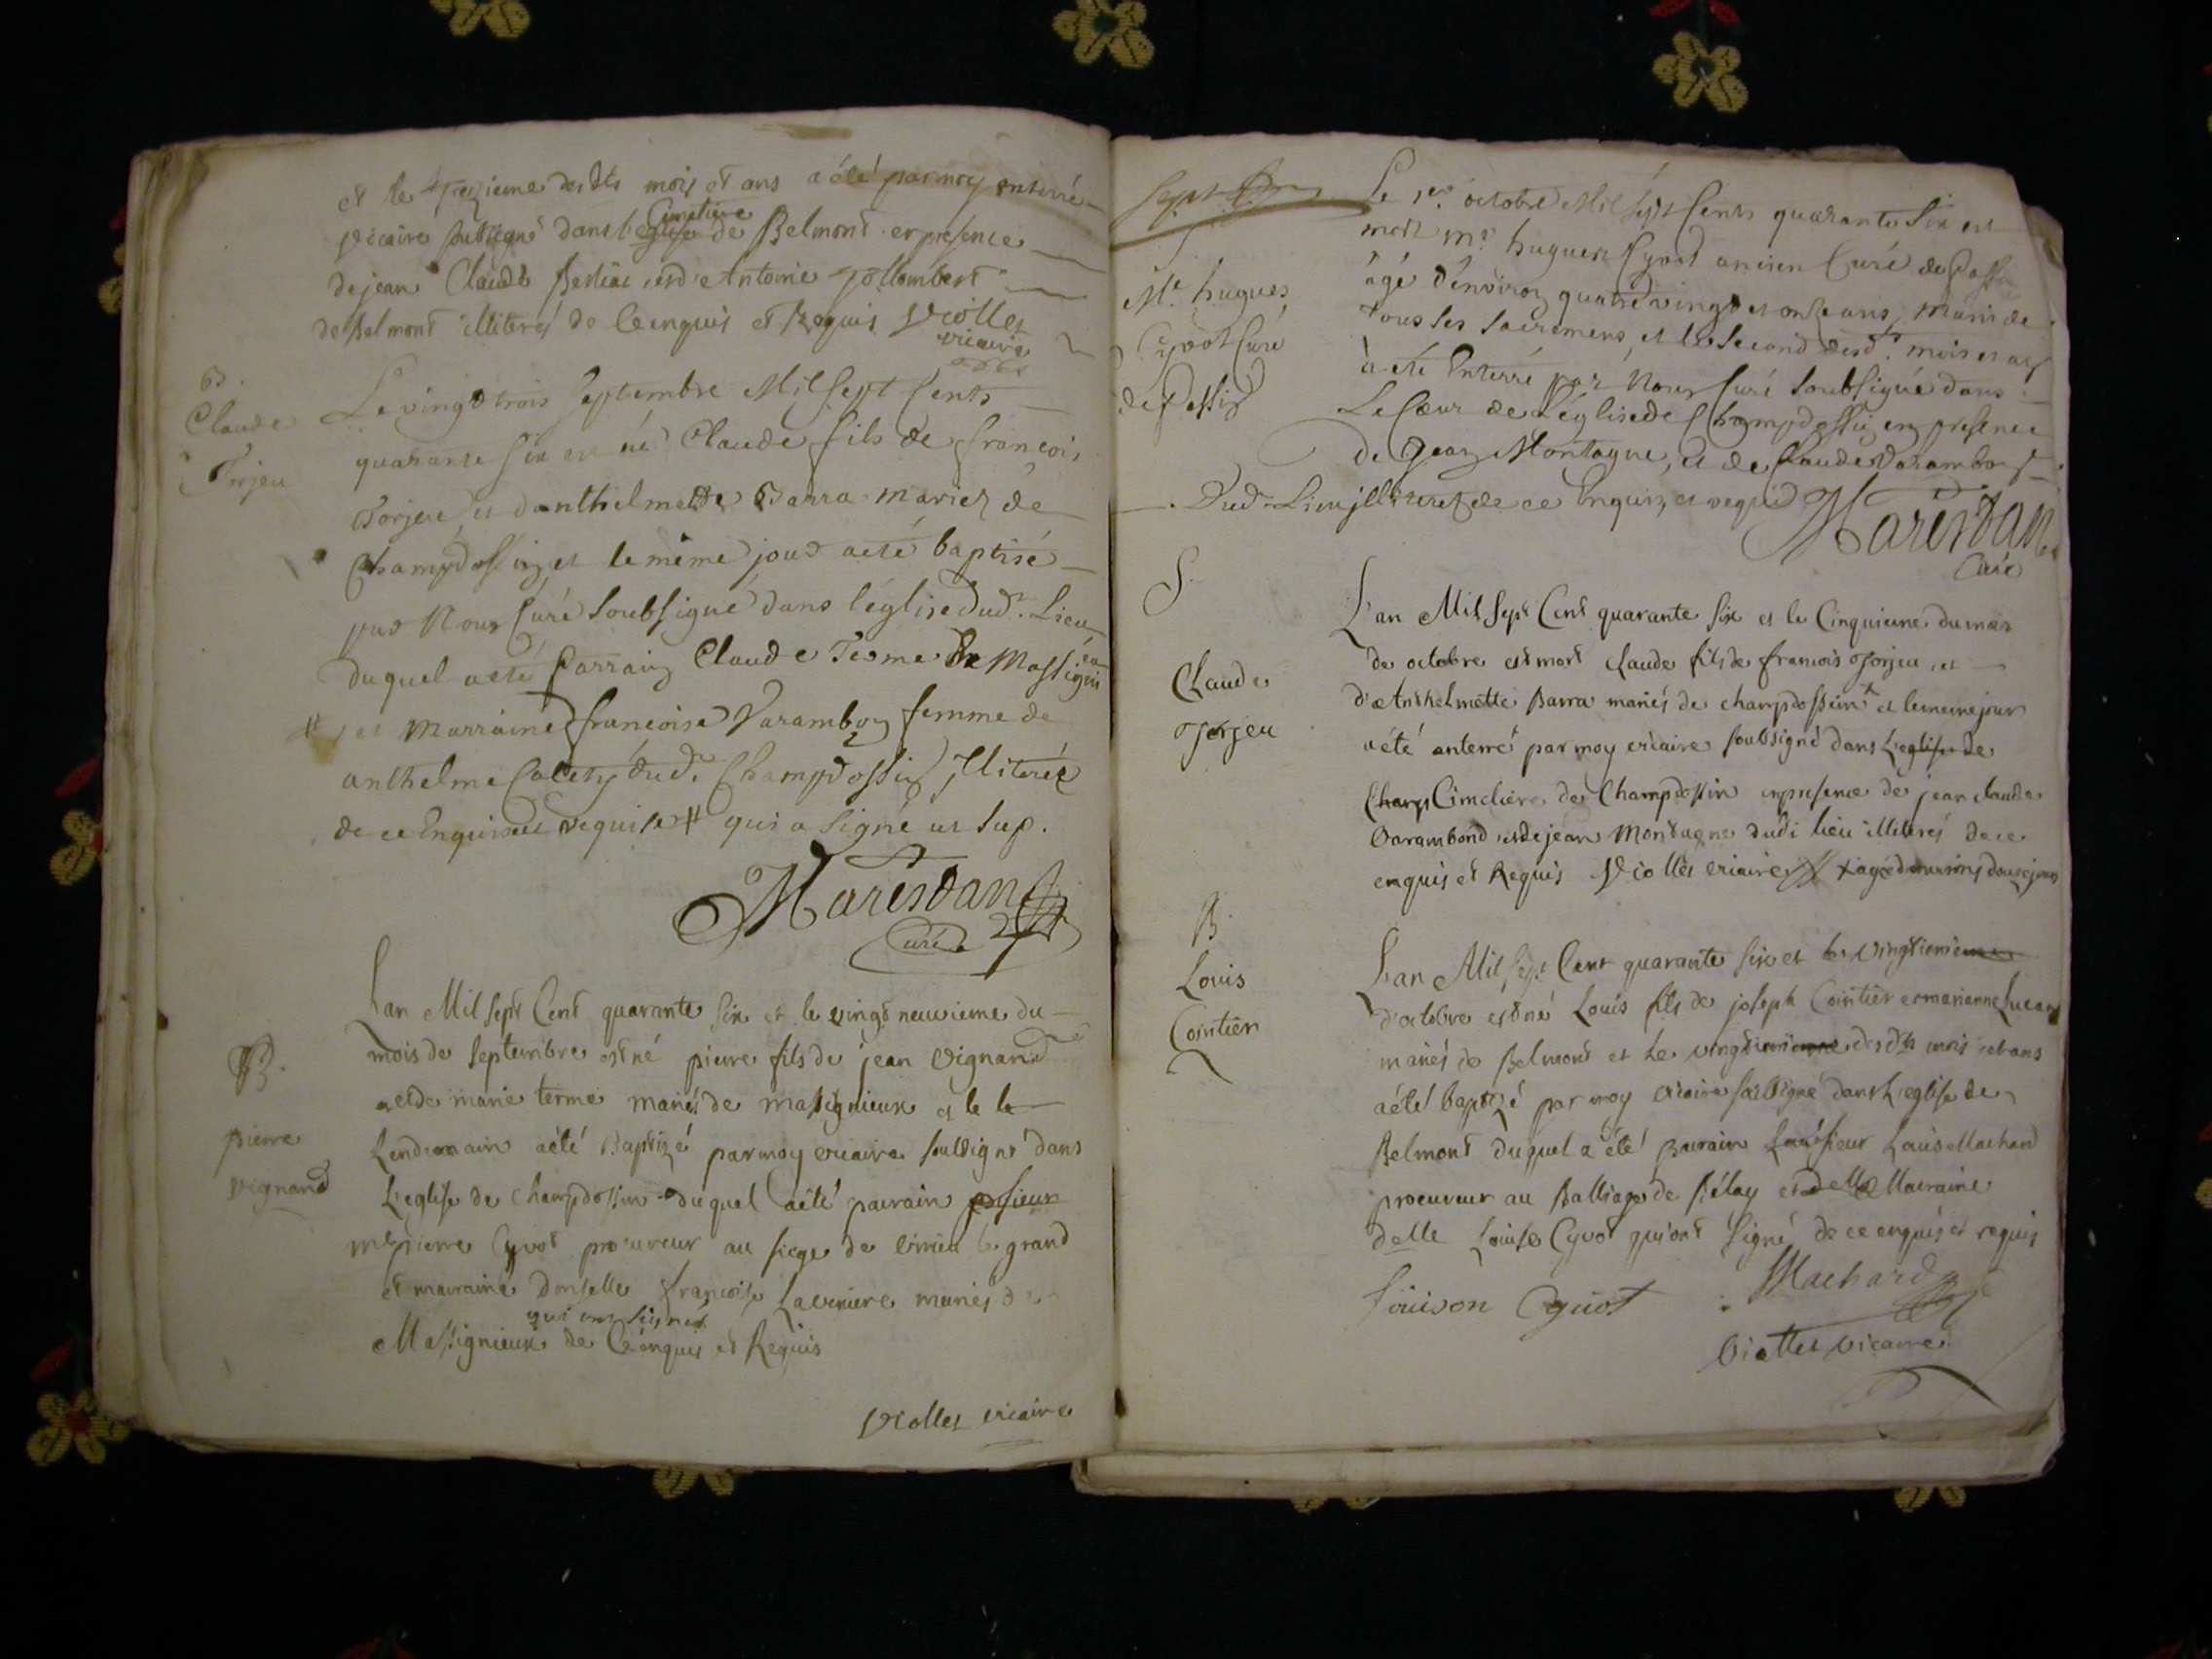 et le trezieme desdts mois et ans a été par moy enterré
vicaire soubsigné dans l'eglise Cimetiere de Belmont en presence
de jean Claude Berliat et d'Antoine Jollambert
de Belmont illiterés de ce enquis et Requis Viollet
vicaire
B.
Claude
Torjeu
Le vingt trois Septembre Mil Sept Cents
quarante Six est né Claude fils de francois
Torjeu et d'anthelmette Barra mariez de
Champdossin, et le même jour a eté baptisé
par Nous Curé Soubsigné dans l'église dud. Lieu
duquel a eté Parrain Claude Terme de Massignieu
# et Marraine francoise Varambon femme de
anthelme dud. Champdossin illiteréz
de ce Enquis et requise # qui a Signé ut Sup.
Marestan
Curé
B.
pierre
vignand
L'an Mil Sept Cent quarante Six et le vingt neuvieme du
mois de Septembre est né pierre fils de jean Vignand
et de marie terme mariés de massignieux et le le
Lendemain a été Baptizé par moy vicaire soussigné dans
L'eglise de Champdossin duquel a été parain
me pierre Cyvot procureur au siege de virieu le grand
et maraine donselle francoise Laverniere mariés de
qui ont signés
Massignieux de Ce enquis et Requis
Viollet vicaire
Sept
S
Me. hugues
Cyvot Curé
de Possin
Le 1er. octobre Mil Sept Cents quarante Six est
mort Mr. hugues Cyvot ancien Curé de Possin
âgé d'environ quatre vingt et onze ans, Muni de
tous les Sacremens, et le Second desd. mois et an
a eté Enterré par Nous Curé Soubsigné dans
Le Cœur de l'église de Champdossin en presence
de Jean Montagne, et de Claude Varambon
Dud. Lieu illiteréz de ce Enquis, et requis
Marestan
Curé
S.
Claude
Torjeu
L'an Mil Sept Cent quarante Six et le Cinquieme du mois
de octobre est mort Claude fils de francois Torjeu et
d'Anthelmette Barra mariés de champdossin + et le meme jour
a été anterré par moy vicaire soubsigné dans L'eglise de
Champ Cimetiere de Champdossin en presence de jean claude
Varambond et de jean Montagne dudi lieu illiterés de ce
enquis et Requis Viollet vicaire + agé d'environs douze jours
B.
Louis
Cointier
L'an Mil Sept Cent quarante Six et le vingtieme
d'octobre est né Louis fils de joseph Cointier et marianne
mariés de Belmont et Le vingtieme desdts mois et ans
a été baptizé par moy vicaire soussigné dans L'eglise de
Belmont duquel a été parain sieur Louis Machard
procureur au Balliage de Belay et delle Maraine
delle Louise Cyvot qui ont Signé de ce enquis et requis
Louison Cyuot
Machard
Viollet vicaire